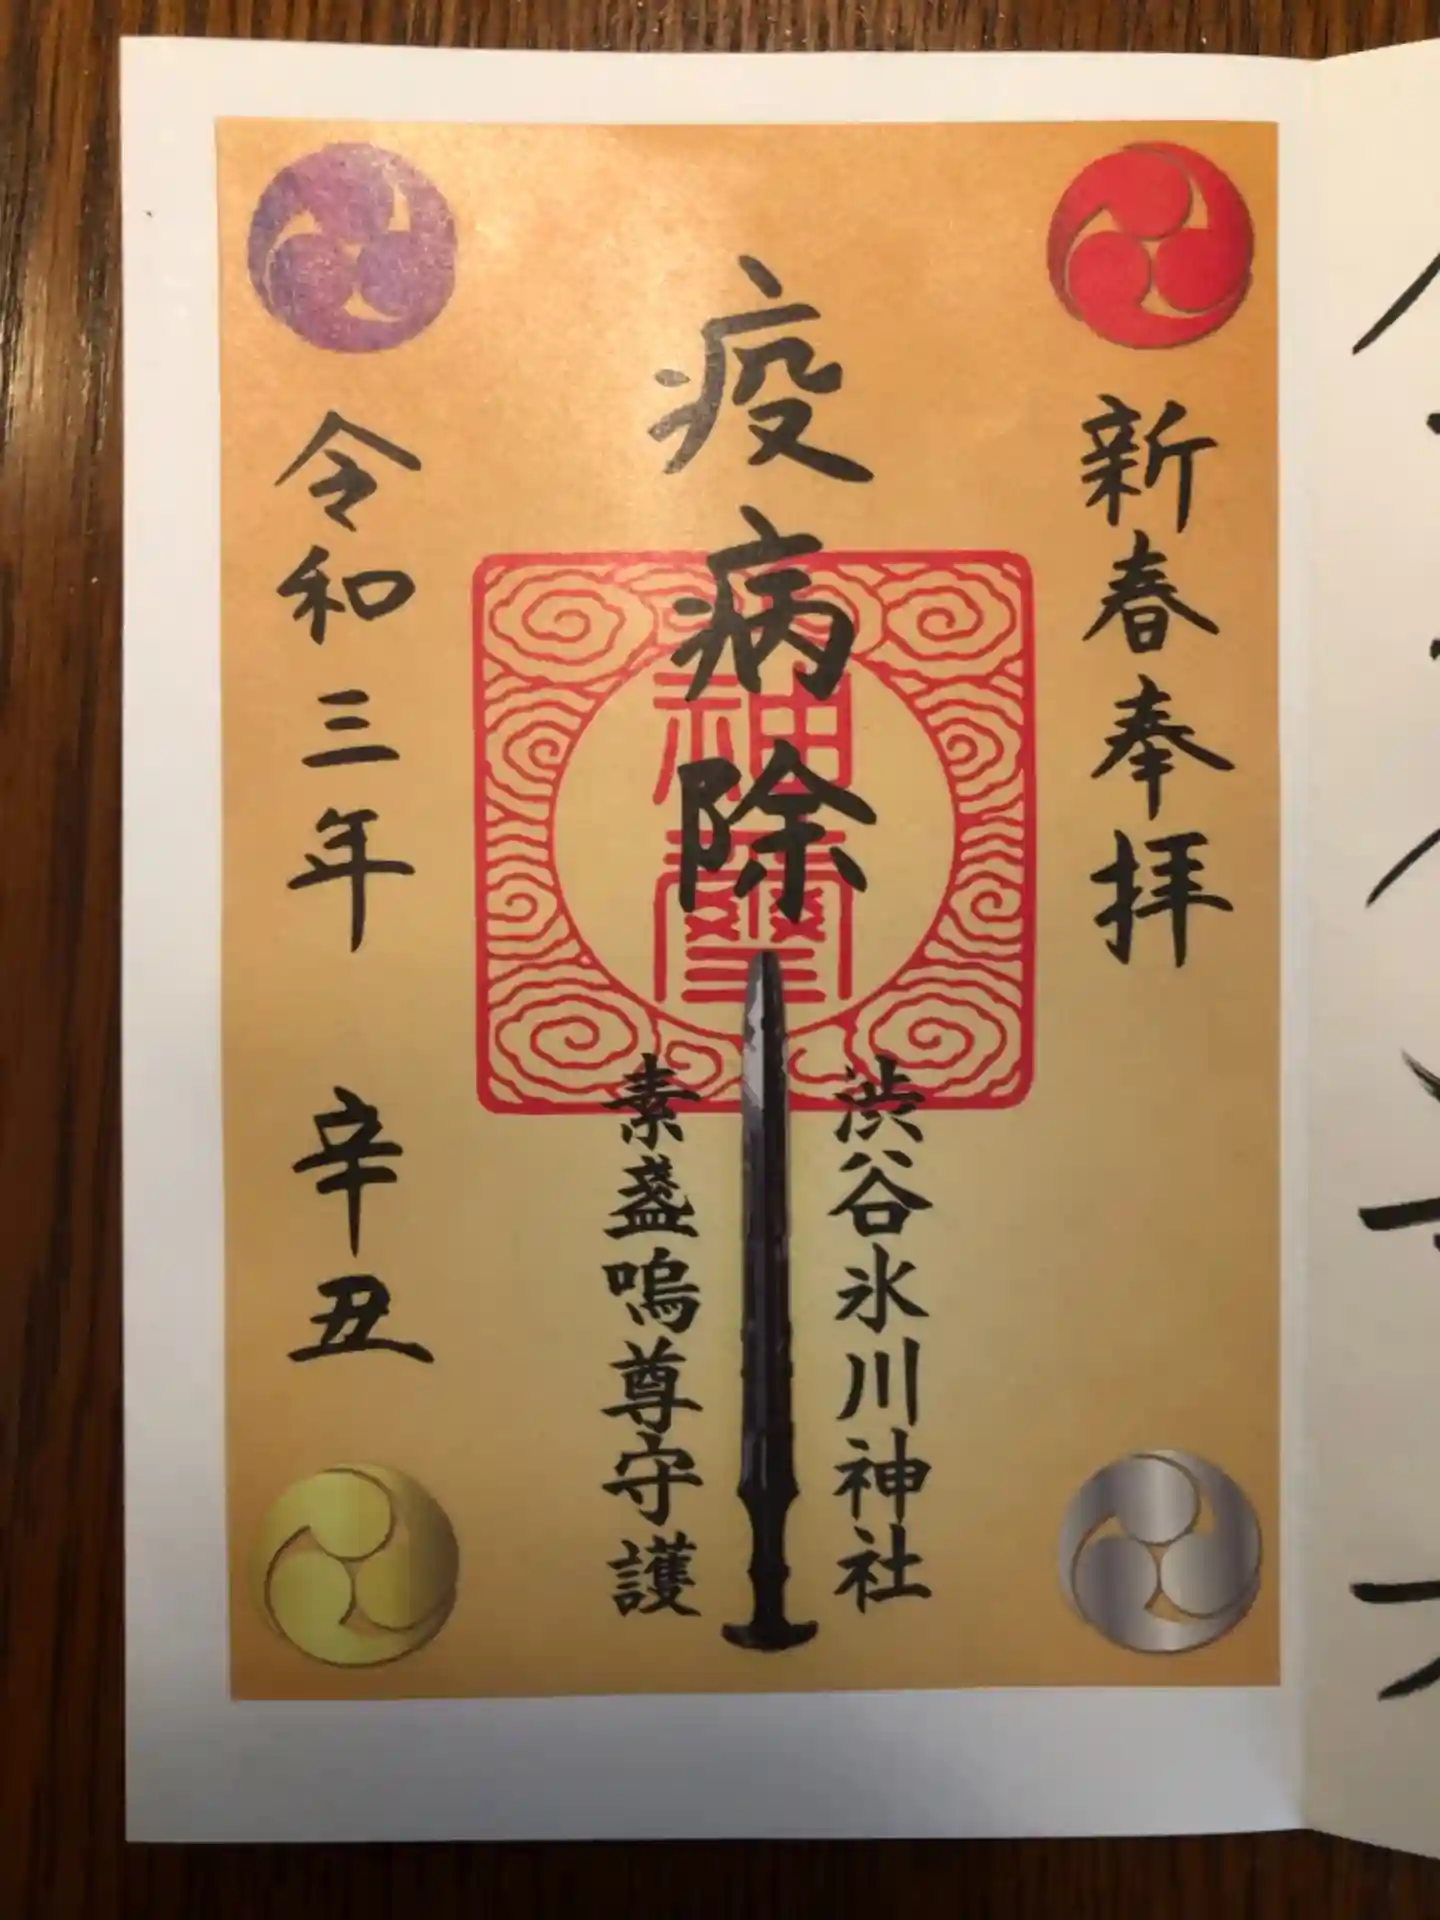 新春奉拝
疫病除
神璽
渋谷氷川神社
素盞嗚尊守護
令和三年 辛丑